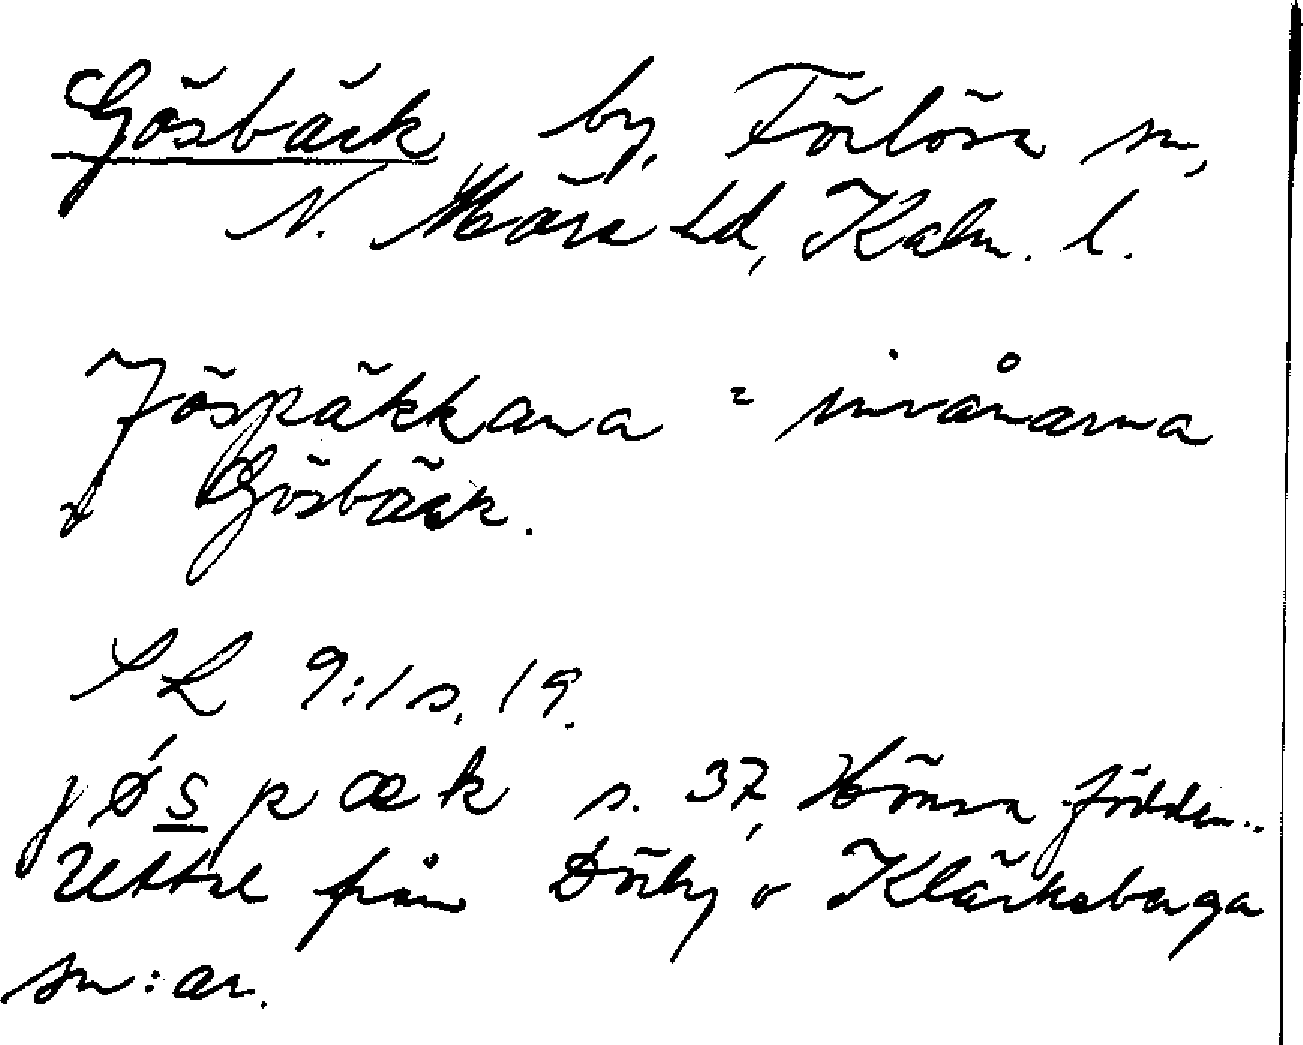 Gösbäck by, Förlösa sn,
N. Möre hd, Kalm. l.
Jöspäkkana = invånarna
i Gösbäck.
SL 9:1 s. 19.
jǿs̲pæk s. 37, född
Uttal från Dörby o Kläckeberga
sn:ar.